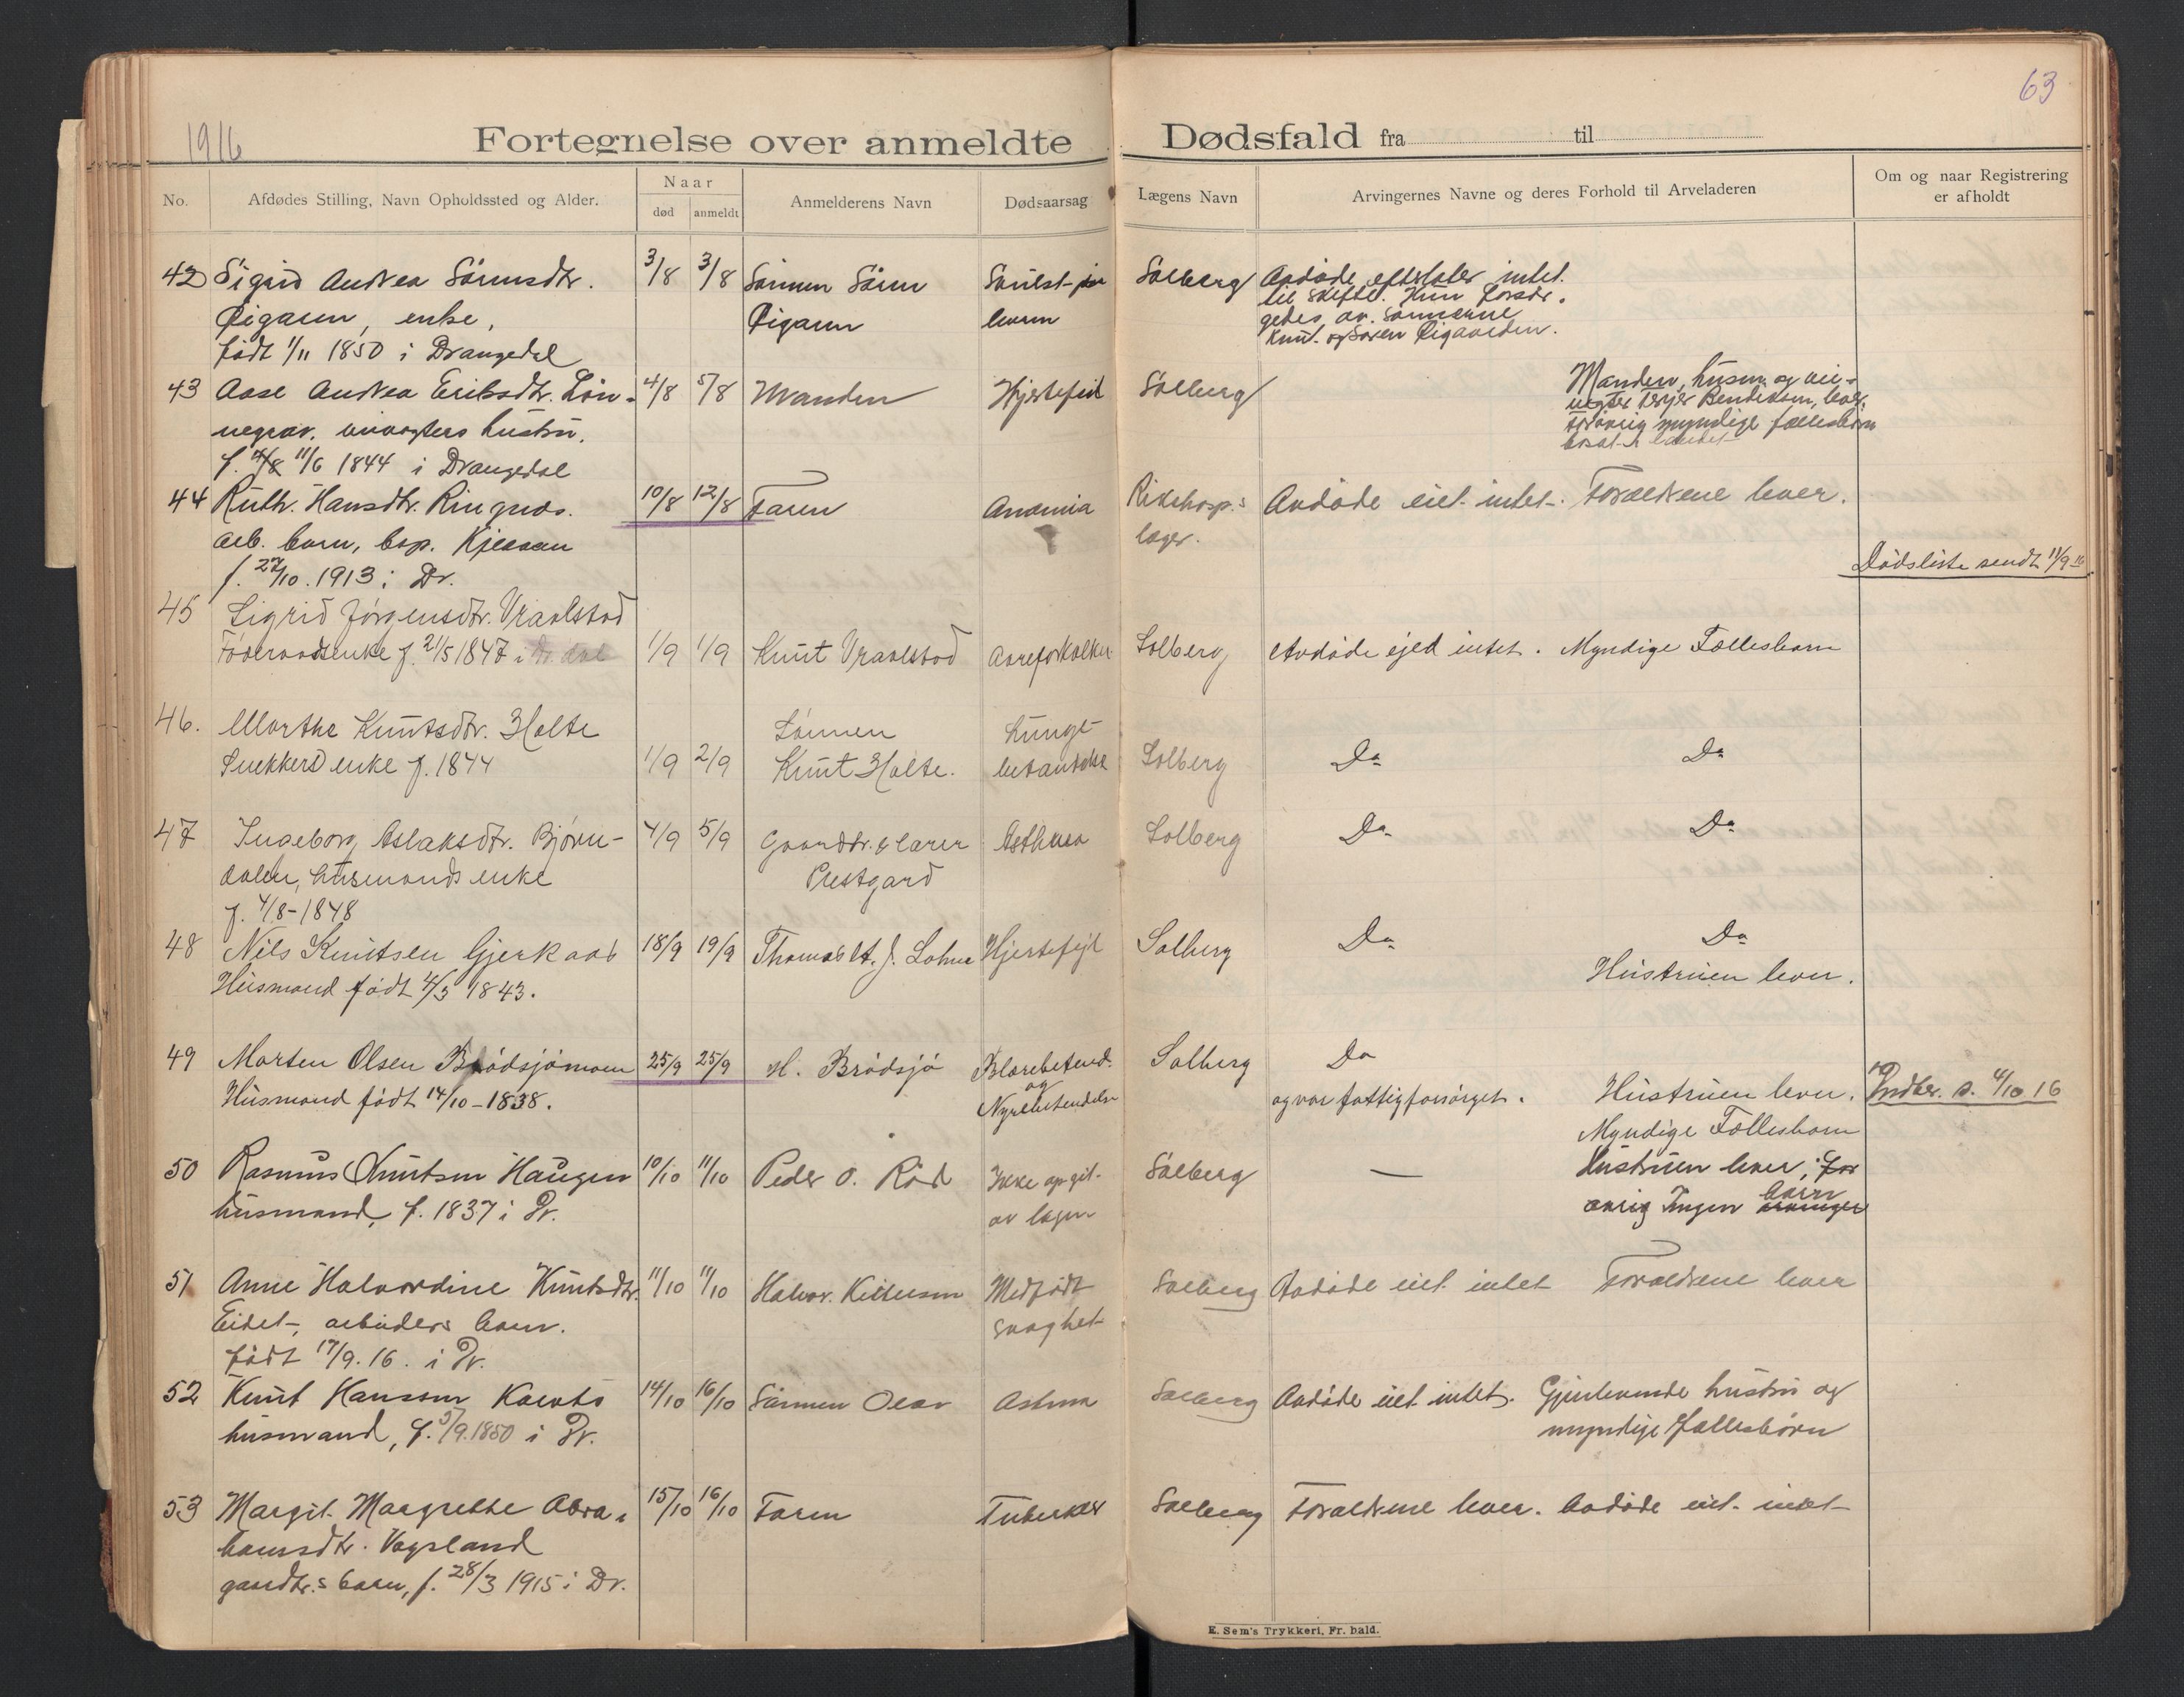 63
1916
Fortegnelse over anmeldte Dødsfald fra til
No.
Afdødes Stilling, Navn Opholdssted og Alder.
Naar
død
anmeldt
Anmelderens Navn
Dødsaarsag
Lægens Navn
Arvingernes Navne og deres Forhold til Arveladeren
Om og naar Registrering
er afholdt
42 Sigrid Andrea Sørensdtr. 3/8 3/8 Sønnen Søren Solberg Avdøde efterlater intet
enke, til skifte. Hun forsør-
gedes av sønnerne
født 1/11 1850 i Drangedal Knut og Søren
43 Aase Andrea Eriksdtr. Løn- 4/8 5/8 Manden Hjertefeil Solberg Manden, husm. og vei-
negrav, veivogters hustru. vogter Terjer Bendiksen, lever,
forøvrig myndige fællesbørn
f. 11/6 1844 i Drangedal
44 Ruth Hansdtr. Ringnæs. 10/8 12/8 Faren Anæmia Rikshosp.s Avdøde eiet intet. Forældrene lever.
arb. barn, bop. Kjeasen læger.
f. 27/10.1913 i Dr. Dødsliste sendt 11/9 16
45 Sigrid Jørgensdtr. Vraalstad
Føderaadsenke f. 21/5 1847 i 1/9 1/9 Knut Vraalstad Aareforkalkn Solberg Avdøde ejed intet. Myndige Fællesbarn
46. Marthe Knutsdtr. Holte Sønnen Lunge-
Snekkers enke f. 1844 1/9 2/9 Knut Holte. betændelse Solberg Do Do
47 Ingeborg Aslaksdtr. Bjørn- 4/9 5/9 Gaardbr. Asthma Solberg Do Do
dalen, husmands enke Prestgard
f. 4/8-1848
48 Nils Knutsen Gjerkaas 18/9 19/9 Thomas Hjertefejl Solberg Do Do
Husmand født 4/3 1843. Hustruen lever.
49 Morten Olsen Brødsjømoen 25/9 25/9 H. Brødsjø Blærebetend. Solberg Do
og
Husmand født 14/10-1838. Nyrebetendelse og var fattigforsørget. Hustruen lever. Indber. s. 4/10 16
Myndige Fællesbarn
50 Rasmus Knutsen Haugen 10/10 11/10 Peder O. Rød Ikke opgit Solberg — Hustruen lever, for
husmand, f. 1837 i Dr. av lægen øvrig Ingen arvinger barn
51 Anne Halvordine Knutsdtr. 11/10 11/10 Halvor Kittelsen Medfødt Solberg Avdøde eiet intet Forældrene lever
Eidet, arbeiders barn. svaghet
født 17/9.16. i Dr.
52 Knut Hansson 14/10 16/10 Sønnen Olav Astma Solberg Avdøde eiet intet. Gjenlevende hustru og
husmand, f. 5/9.1850 i Dr. myndige fællesbørn
53 Margit Margrethe Abra- 15/10 16/10 Faren Tuberkler Solberg Forældrene lever. Avdøde eiet intet
hamsdtr. Vøgsland
gaardbr.s barn, f. 28/3 1915 i Dr.
E. Sem's Trykkeri, Fr. hald.